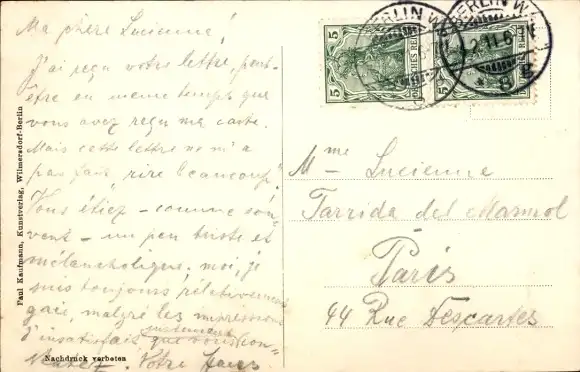 Ma chère Lucienne!
J'ai reçu votre lettre, peut-
être en même temps que
vous avez reçu ma carte.
Mais cette lettre ne m'a
pas fait rire beaucoup!
Vous étiez - comme sou-
vent - un peu triste et
mélancolique, moi, je
suis toujours relativement
gai, malgré les impressions
d'insatisfait que vous
Votre
Mme Lucienne
Tarrida del Marmol
Paris
44 Rue Descartes
Paul Kaufmann, Kunstverlag, Wilmersdorf-Berlin
Nachdruck verboten
BERLIN W
BERLIN W
5
5
DEUTSCHES REICH